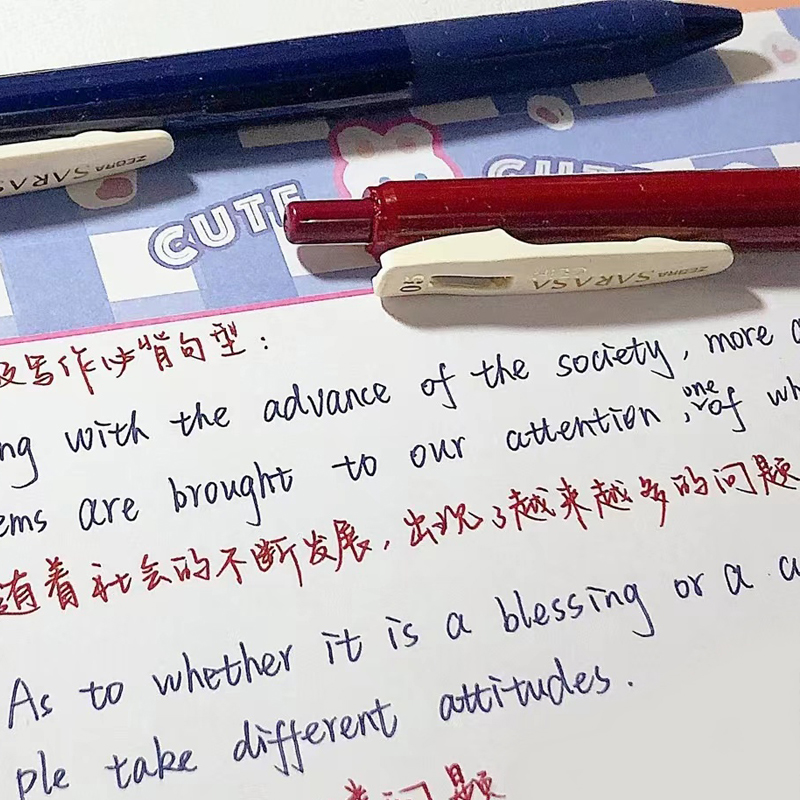 ZEBRA SARASA
CUTE
CUTE
0.5 ZEBRA SARASA CLIP
写作必背句型：
with the advance of the society, more
are brought to our attention, one of
随着社会的不断发展，出现了越来越多的问题
As to whether it is a blessing or a
take different attitudes.
问题